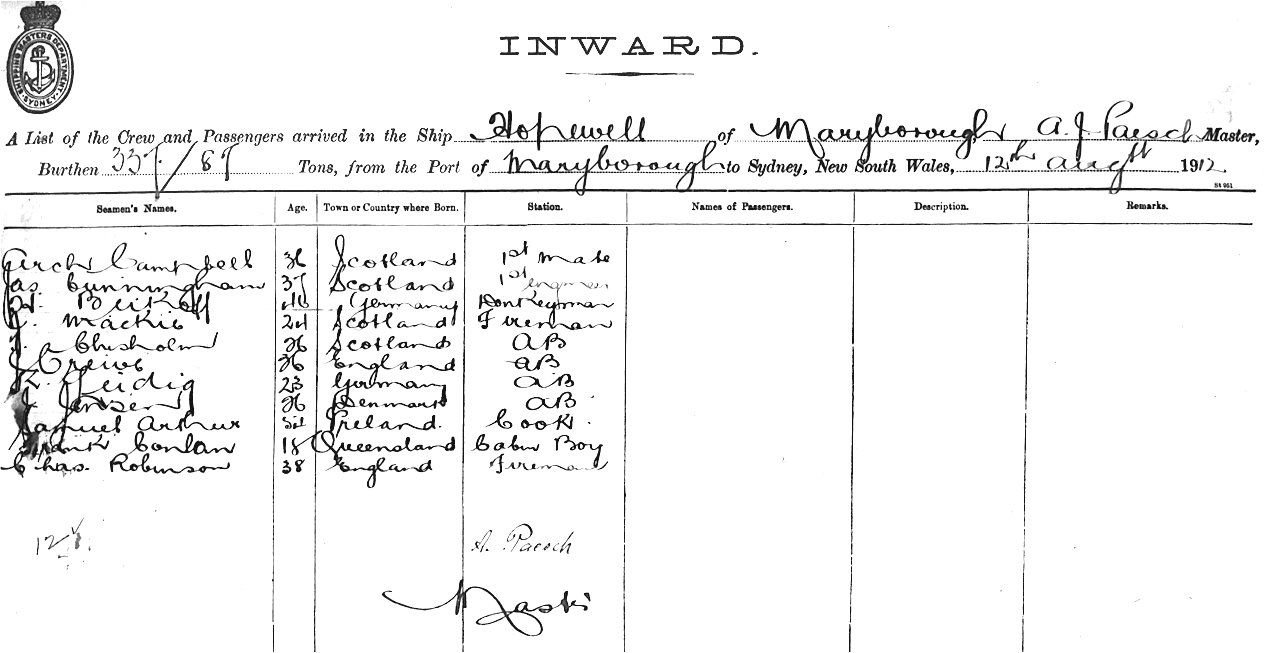 SHIPPING MASTERS DEPARTMENT · SYDNEY ·
INWARD.
A List of the Crew and Passengers arrived in the Ship Hopewell of Maryborough, A. J. Paesch Master,
Burthen 337/87 Tons, from the Port of Maryborough to Sydney, New South Wales, 12th Augst 1912
St 951
Seamen's Names. Age. Town or Country where Born. Station. Names of Passengers. Description. Remarks.
Arch Campbell 36 Scotland 1st Mate
Jas. Cunningham 37 Scotland 1st Engineer
Germany Donkeyman
Mackie 24 Scotland Fireman
Chisholm 26 Scotland AB
J Crews 36 England AB
Heidig 23 Germany AB
J. Jensen 26 Denmark AB
Samuel Arthur Ireland. Cook.
Frank Conlan 18 Queensland Cabin Boy
Chas. Robinson 38 England Fireman
12
A. Paesch
Master